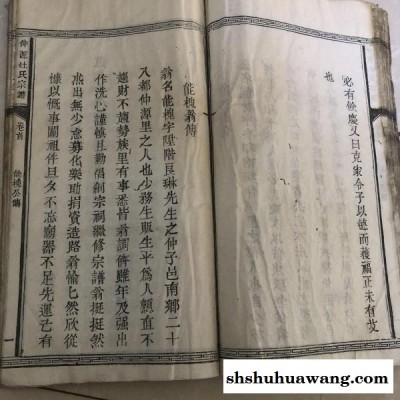 必有餘慶又曰克家令子以德而獲福正未有艾
也
能槐翁傳
翁名能槐字陞階良琳先生之仲子邑南鄉二十
入都仲源里之人也少務生販生平為人顏直不
趨財不趨勢族里有事悉皆翁調停雖年及强出
作洗心謹慎且勸倡剏宗祠繼修宗譜翁挺挺然
慮出無少怠募化樂助捐資造路翁愉七然欣從
據以慨事關祖件旦夕不忘廟器不足先運己有
仲源杜氏宗譜
卷首
能槐公傳
一
shshuhuawang.com